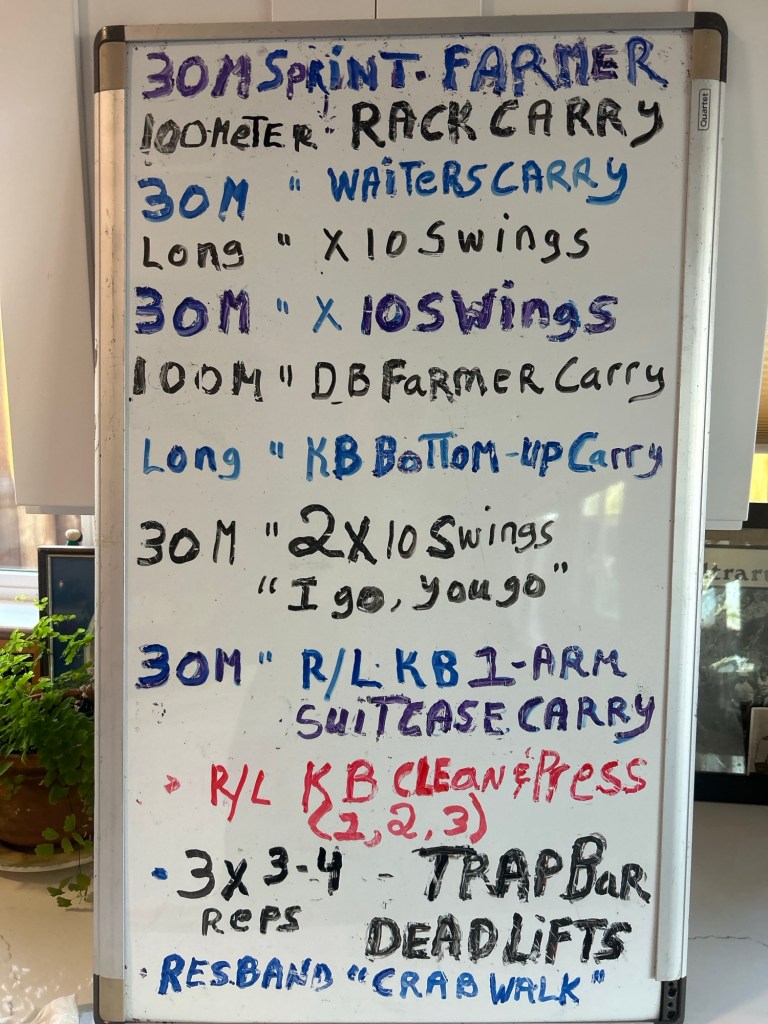 30M SPRINT. FARMER
100METER. RACK CARRY
Quartet
30M " WAITERS CARRY
Long " X 10 Swings
30M " X 10 SWings
100M " DB FARMER Carry
Long " KB BOTTOM-UP Carry
30M " 2X10 Swings
"I go, you go"
30M " R/L KB 1-ARM
SUITCASE CARRY
R/L KB CLEAN & Press
(1,2,3)
• 3x 3-4 - TRAP BaR
RePS DEADLiFTS
• RES.BAND "CRAB WALK"